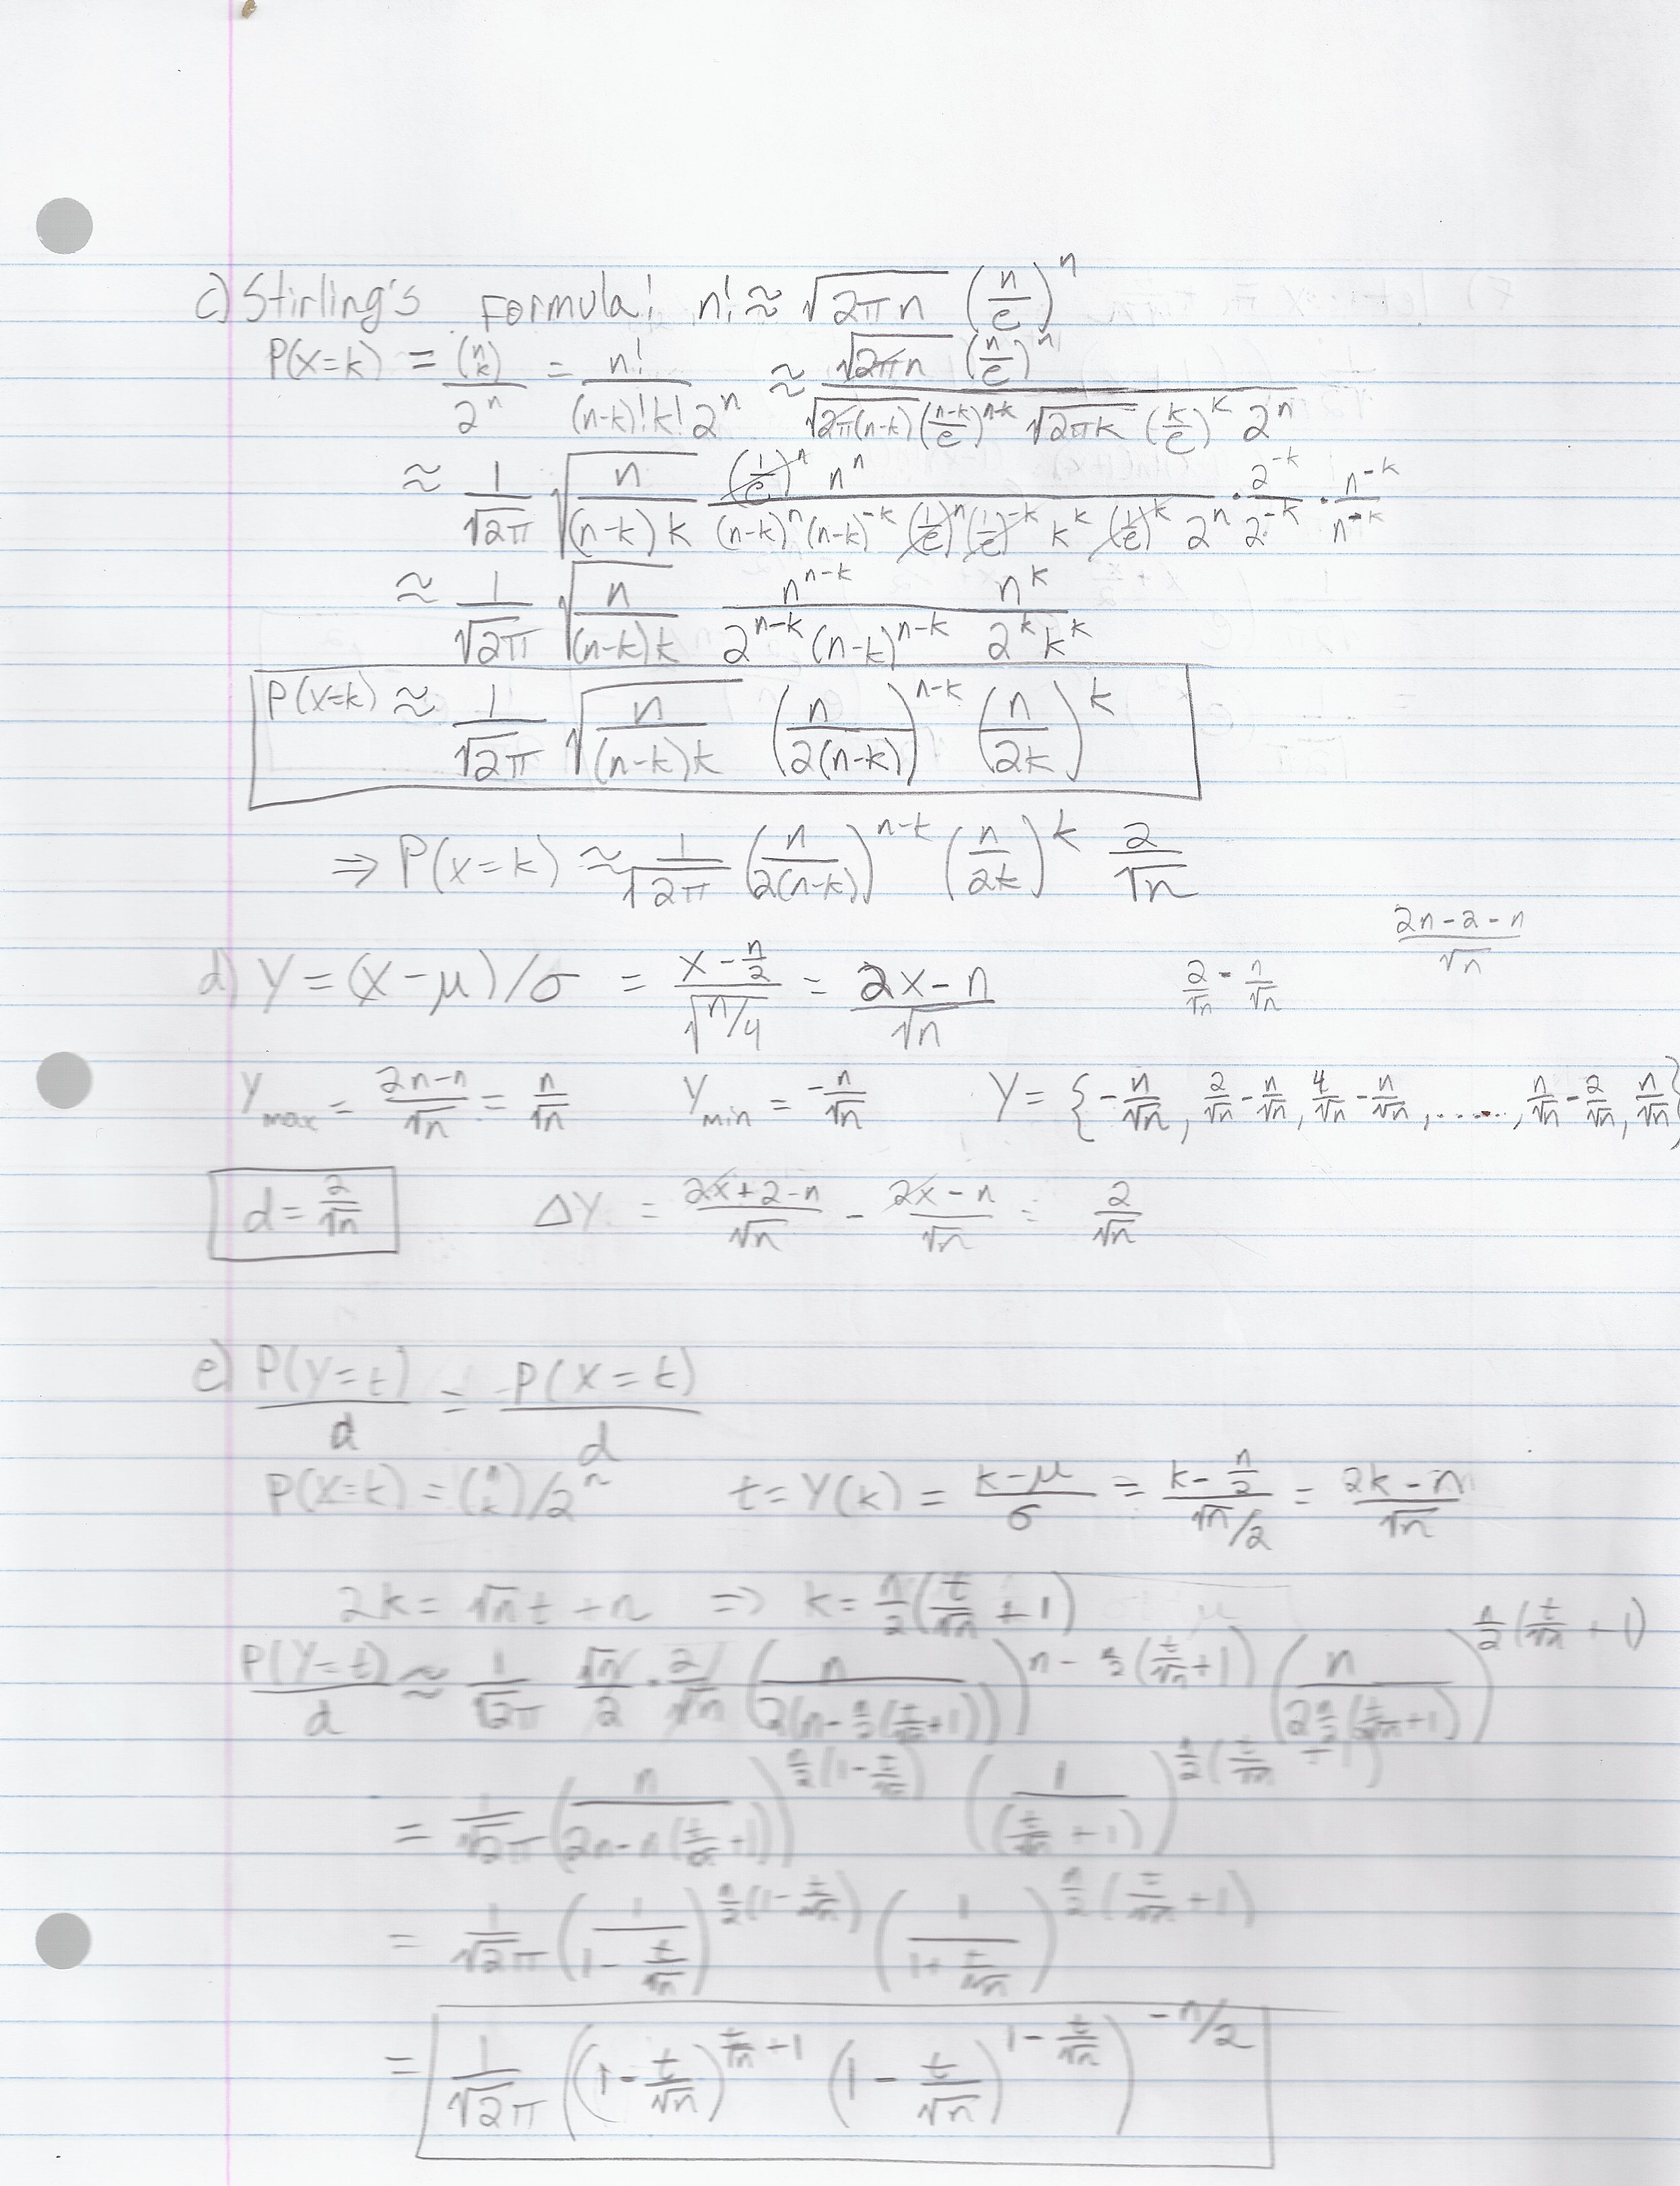 c) Stirling's Formula: n! ≈ √(2πn) (n/e)^n
P(x=k) = (n k)/2^n = n!/((n-k)!k!2^n) ≈ √(2πn) (n/e)^n / (√(2π(n-k)) ((n-k)/e)^(n-k) √(2πk) (k/e)^k 2^n)
≈ 1/√(2π) √(n/((n-k)k)) (1/e)^n n^n / ((n-k)^n (n-k)^(-k) (1/e)^n (1/e)^(-k) k^k (1/e)^k 2^n) · 2^(-k)/2^(-k) · n^(-k)/n^(-k)
≈ 1/√(2π) √(n/((n-k)k)) n^(n-k) n^k / (2^(n-k) (n-k)^(n-k) 2^k k^k)
P(x=k) ≈ 1/√(2π) √(n/((n-k)k)) (n/(2(n-k)))^(n-k) (n/(2k))^k
⇒ P(x=k) ≈ 1/√(2π) (n/(2(n-k)))^(n-k) (n/(2k))^k 2/√n
(2n-2-n)/√n
d) Y = (x-μ)/σ = (x - n/2)/√(n/4) = (2x-n)/√n
2/√n - n/√n
Y max = (2n-n)/√n = n/√n Y min = -n/√n Y = {-n/√n, 2/√n - n/√n, 4/√n - n/√n, ....., n/√n - 2/√n, n/√n}
d = 2/√n ΔY = (2x+2-n)/√n - (2x-n)/√n = 2/√n
e) P(Y=t)/d = P(X=t)/d
P(X=k) = (n k)/2^n t = Y(k) = (k-μ)/σ = (k - n/2)/(√n/2) = (2k-n)/√n
2k = √n t + n ⇒ k = n/2 (t/√n + 1)
P(Y=t)/d ≈ 1/√(2π) √n/2 · 2/√n (n/(2(n - n/2 (t/√n + 1))))^(n - n/2 (t/√n + 1)) (n/(2 n/2 (t/√n + 1)))^(n/2 (t/√n + 1))
= 1/√(2π) (n/(2n - n(t/√n + 1)))^(n/2 (1 - t/√n)) (1/((t/√n + 1)))^(n/2 (t/√n + 1))
= 1/√(2π) (1/(1 - t/√n))^(n/2 (1 - t/√n)) (1/(1 + t/√n))^(n/2 (t/√n + 1))
= 1/√(2π) ((1 - t/√n)^(t/√n + 1) (1 - t/√n)^(1 - t/√n))^(-n/2)